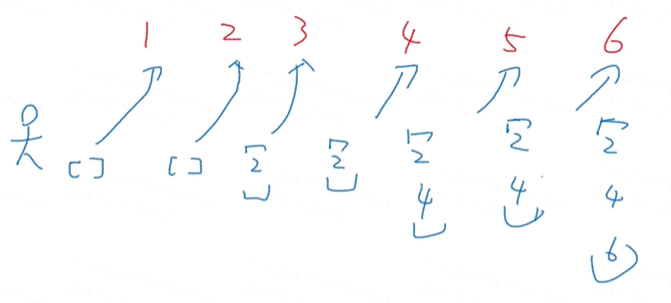 1 2 3 4 5 6
[] [] [2] [2] [2 [2 [2
4] 4] 4
6]